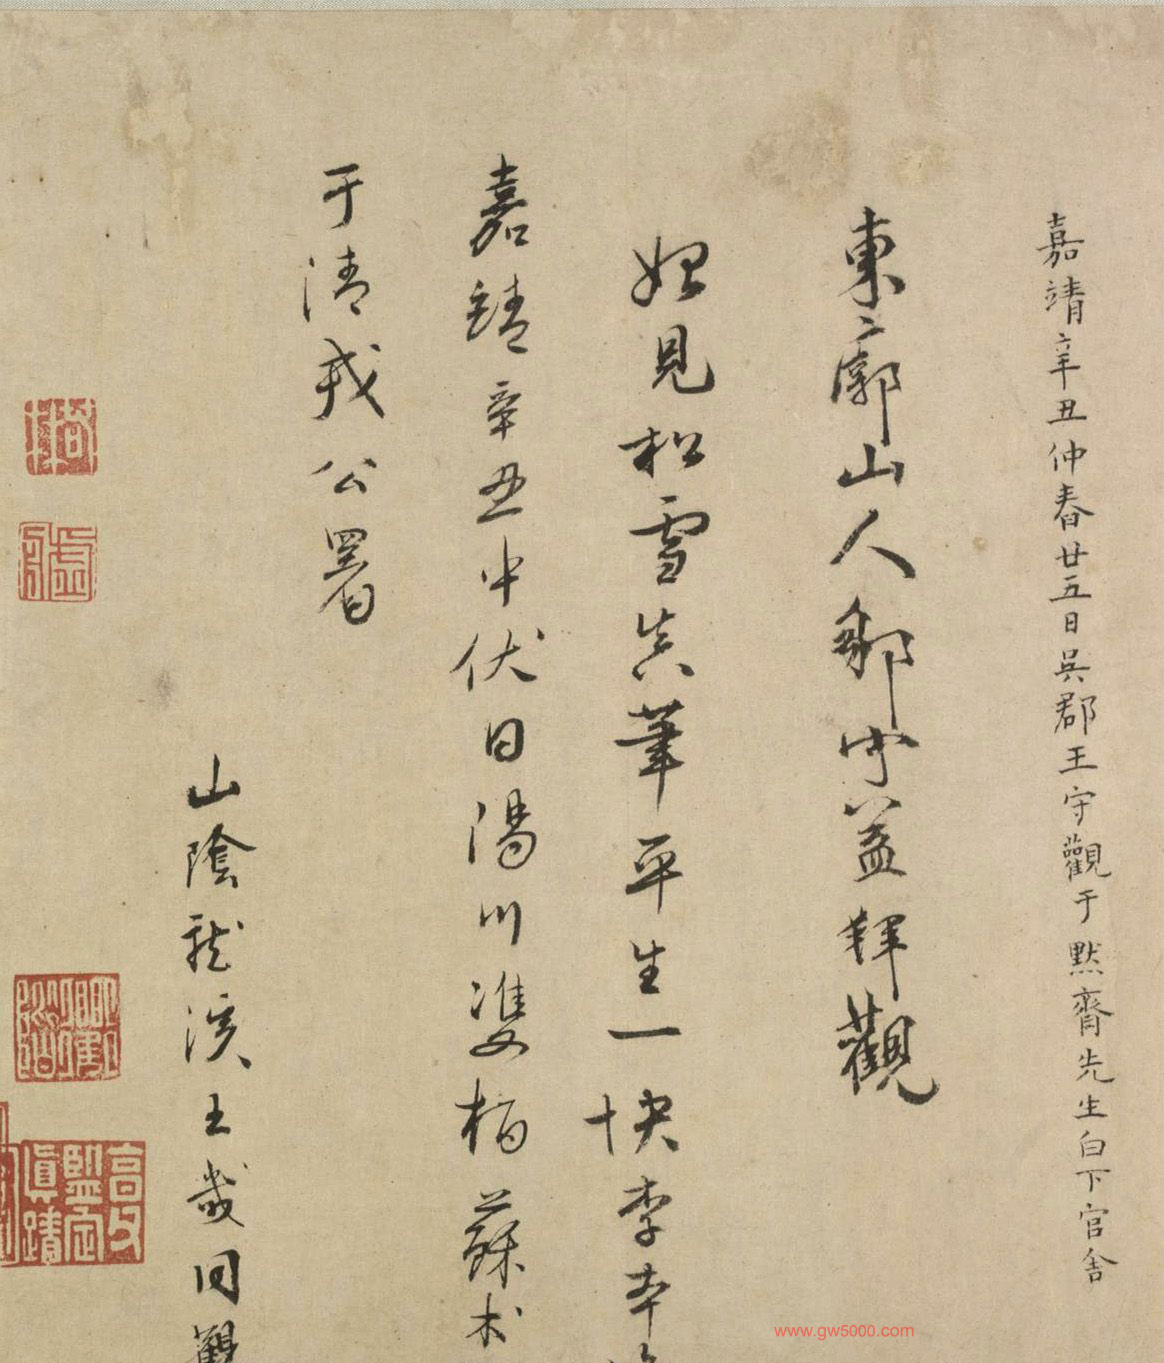 嘉靖辛丑仲春廿五日吳郡王守觀于默齋先生白下官舍
東廓山人鄒守益拜觀
始見松雪真筆平生一快李本
嘉靖辛丑中伏日湯川雙柏蘇术
于清戎公署
山陰龍溪王畿同觀
真蹟
www.gw5000.com